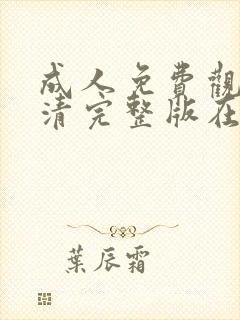 成人免費觀
清完整版在
葉辰霜